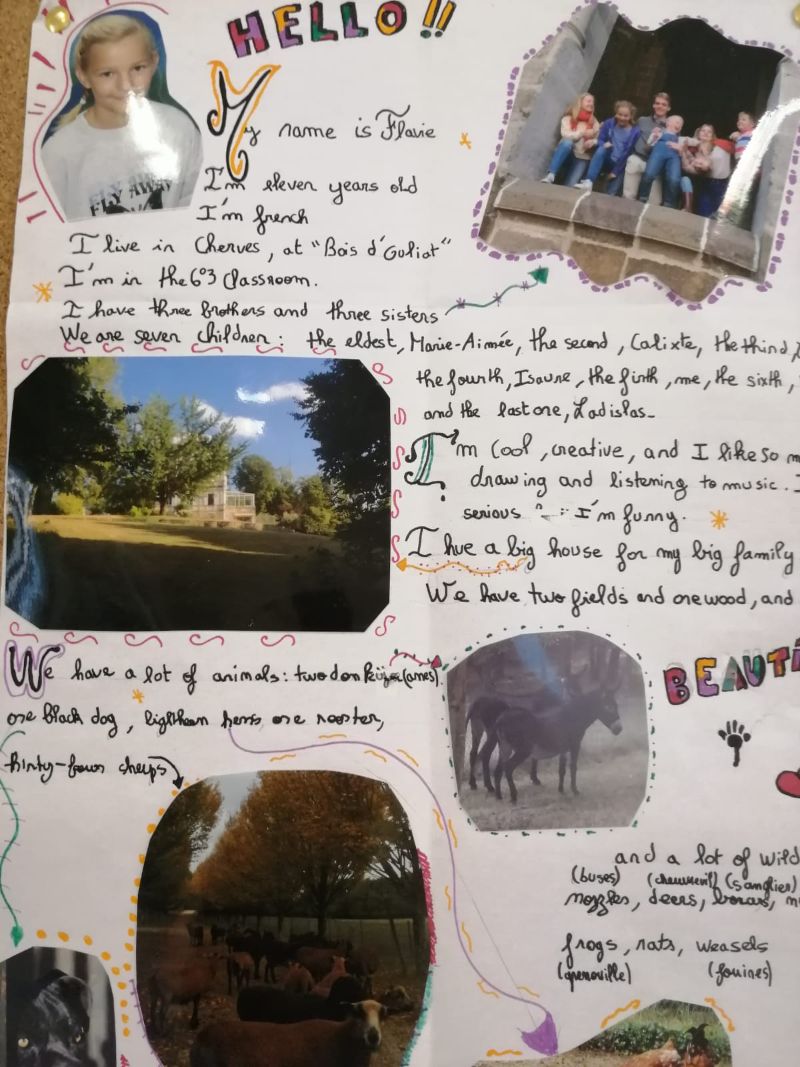 HELLO!!
My name is Flavie
I'm eleven years old
I'm french
I live in Cherves, at "Bois d'Guliat"
I'm in the 6°3 classroom.
I have three brothers and three sisters
We are seven children: the eldest, Marie-Aimée, the second, Calixte, the third,
the fourth, Isaure, the firth, me, the sixth,
and the last one, Ladislas.
I'm cool, creative, and I like so
drawing and listening to music.
serious I'm funny.
I hve a big house for my big family
We have two fields and one wood, and
We have a lot of animals: two (ânes)
one black dog, hens, one rooster,
thirty-four cheeps
BEAUTI
and a lot of wild
(buses) (sanglier)
deers, boars,
frogs, rats, weasels
(grenouille) (fouines)
FLY AWAY